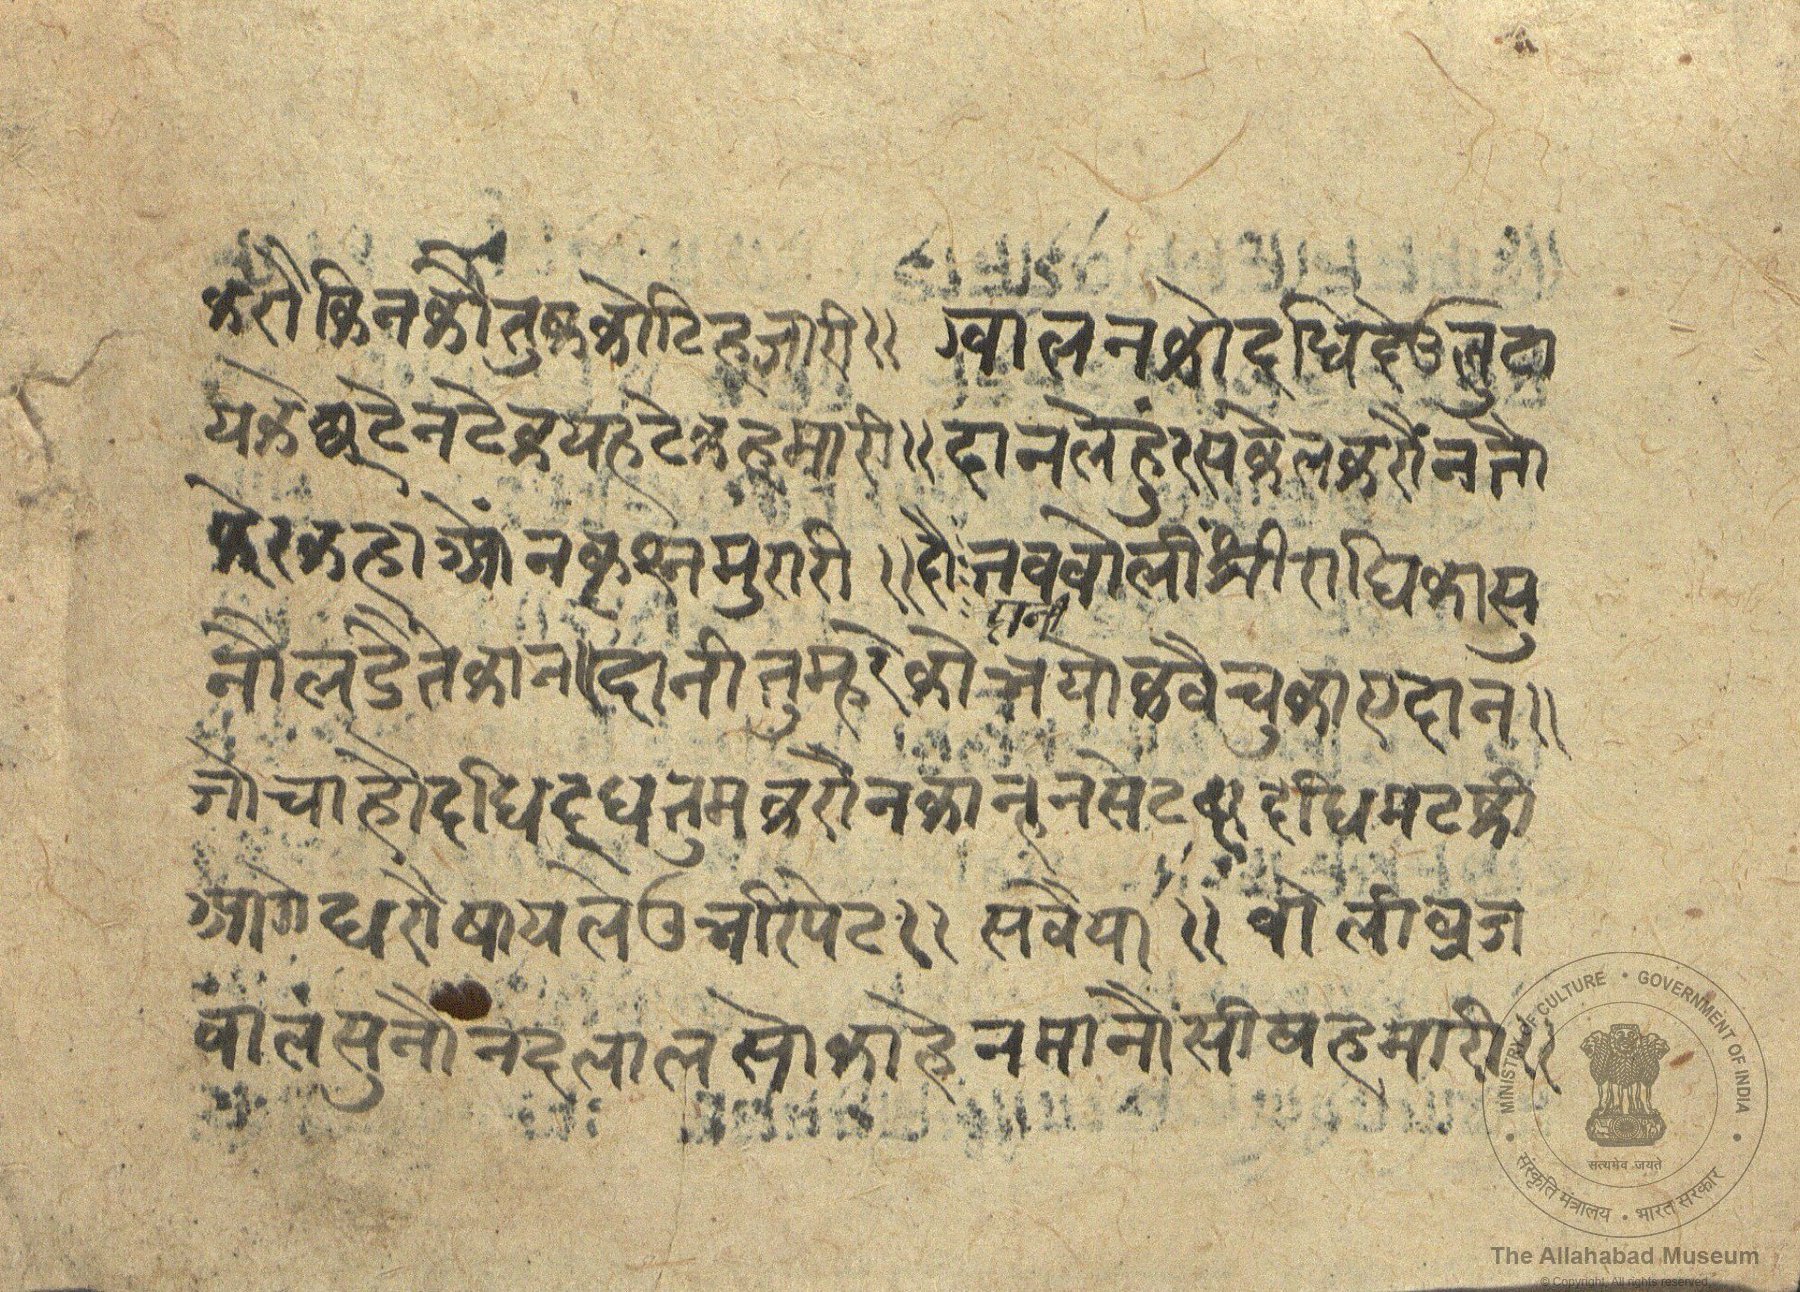 करौ किन कौतुक कोटि हजारी॥ ग्वालन को दधि देउ लुटा
य के छूटे न टेक यह टेक हमारी॥ दान लेहुं रस केल करौं न तौ
फेर कहाओं न कृश्न मुरारी॥ दो॰ तब बोलीं श्री राधिका सु
नौ लडैते कान॥ दानी तुम्हरे को
दानी
भयो कवै चुकाए दान॥
जो चाहो दधि दूध तुम करौ न कानून सेट दधि मटकी
आगे धरो षाय लेउ भरि पेट॥ सवैया॥ बोली ब्रज
बाल सुनौ नदलाल सो काहे न मानौ सीष हमारी॥
MINISTRY OF CULTURE • GOVERNMENT OF INDIA
सत्यमेव जयते
संस्कृति मंत्रालय • भारत सरकार
The Allahabad Museum
© Copyright. All rights reserved.